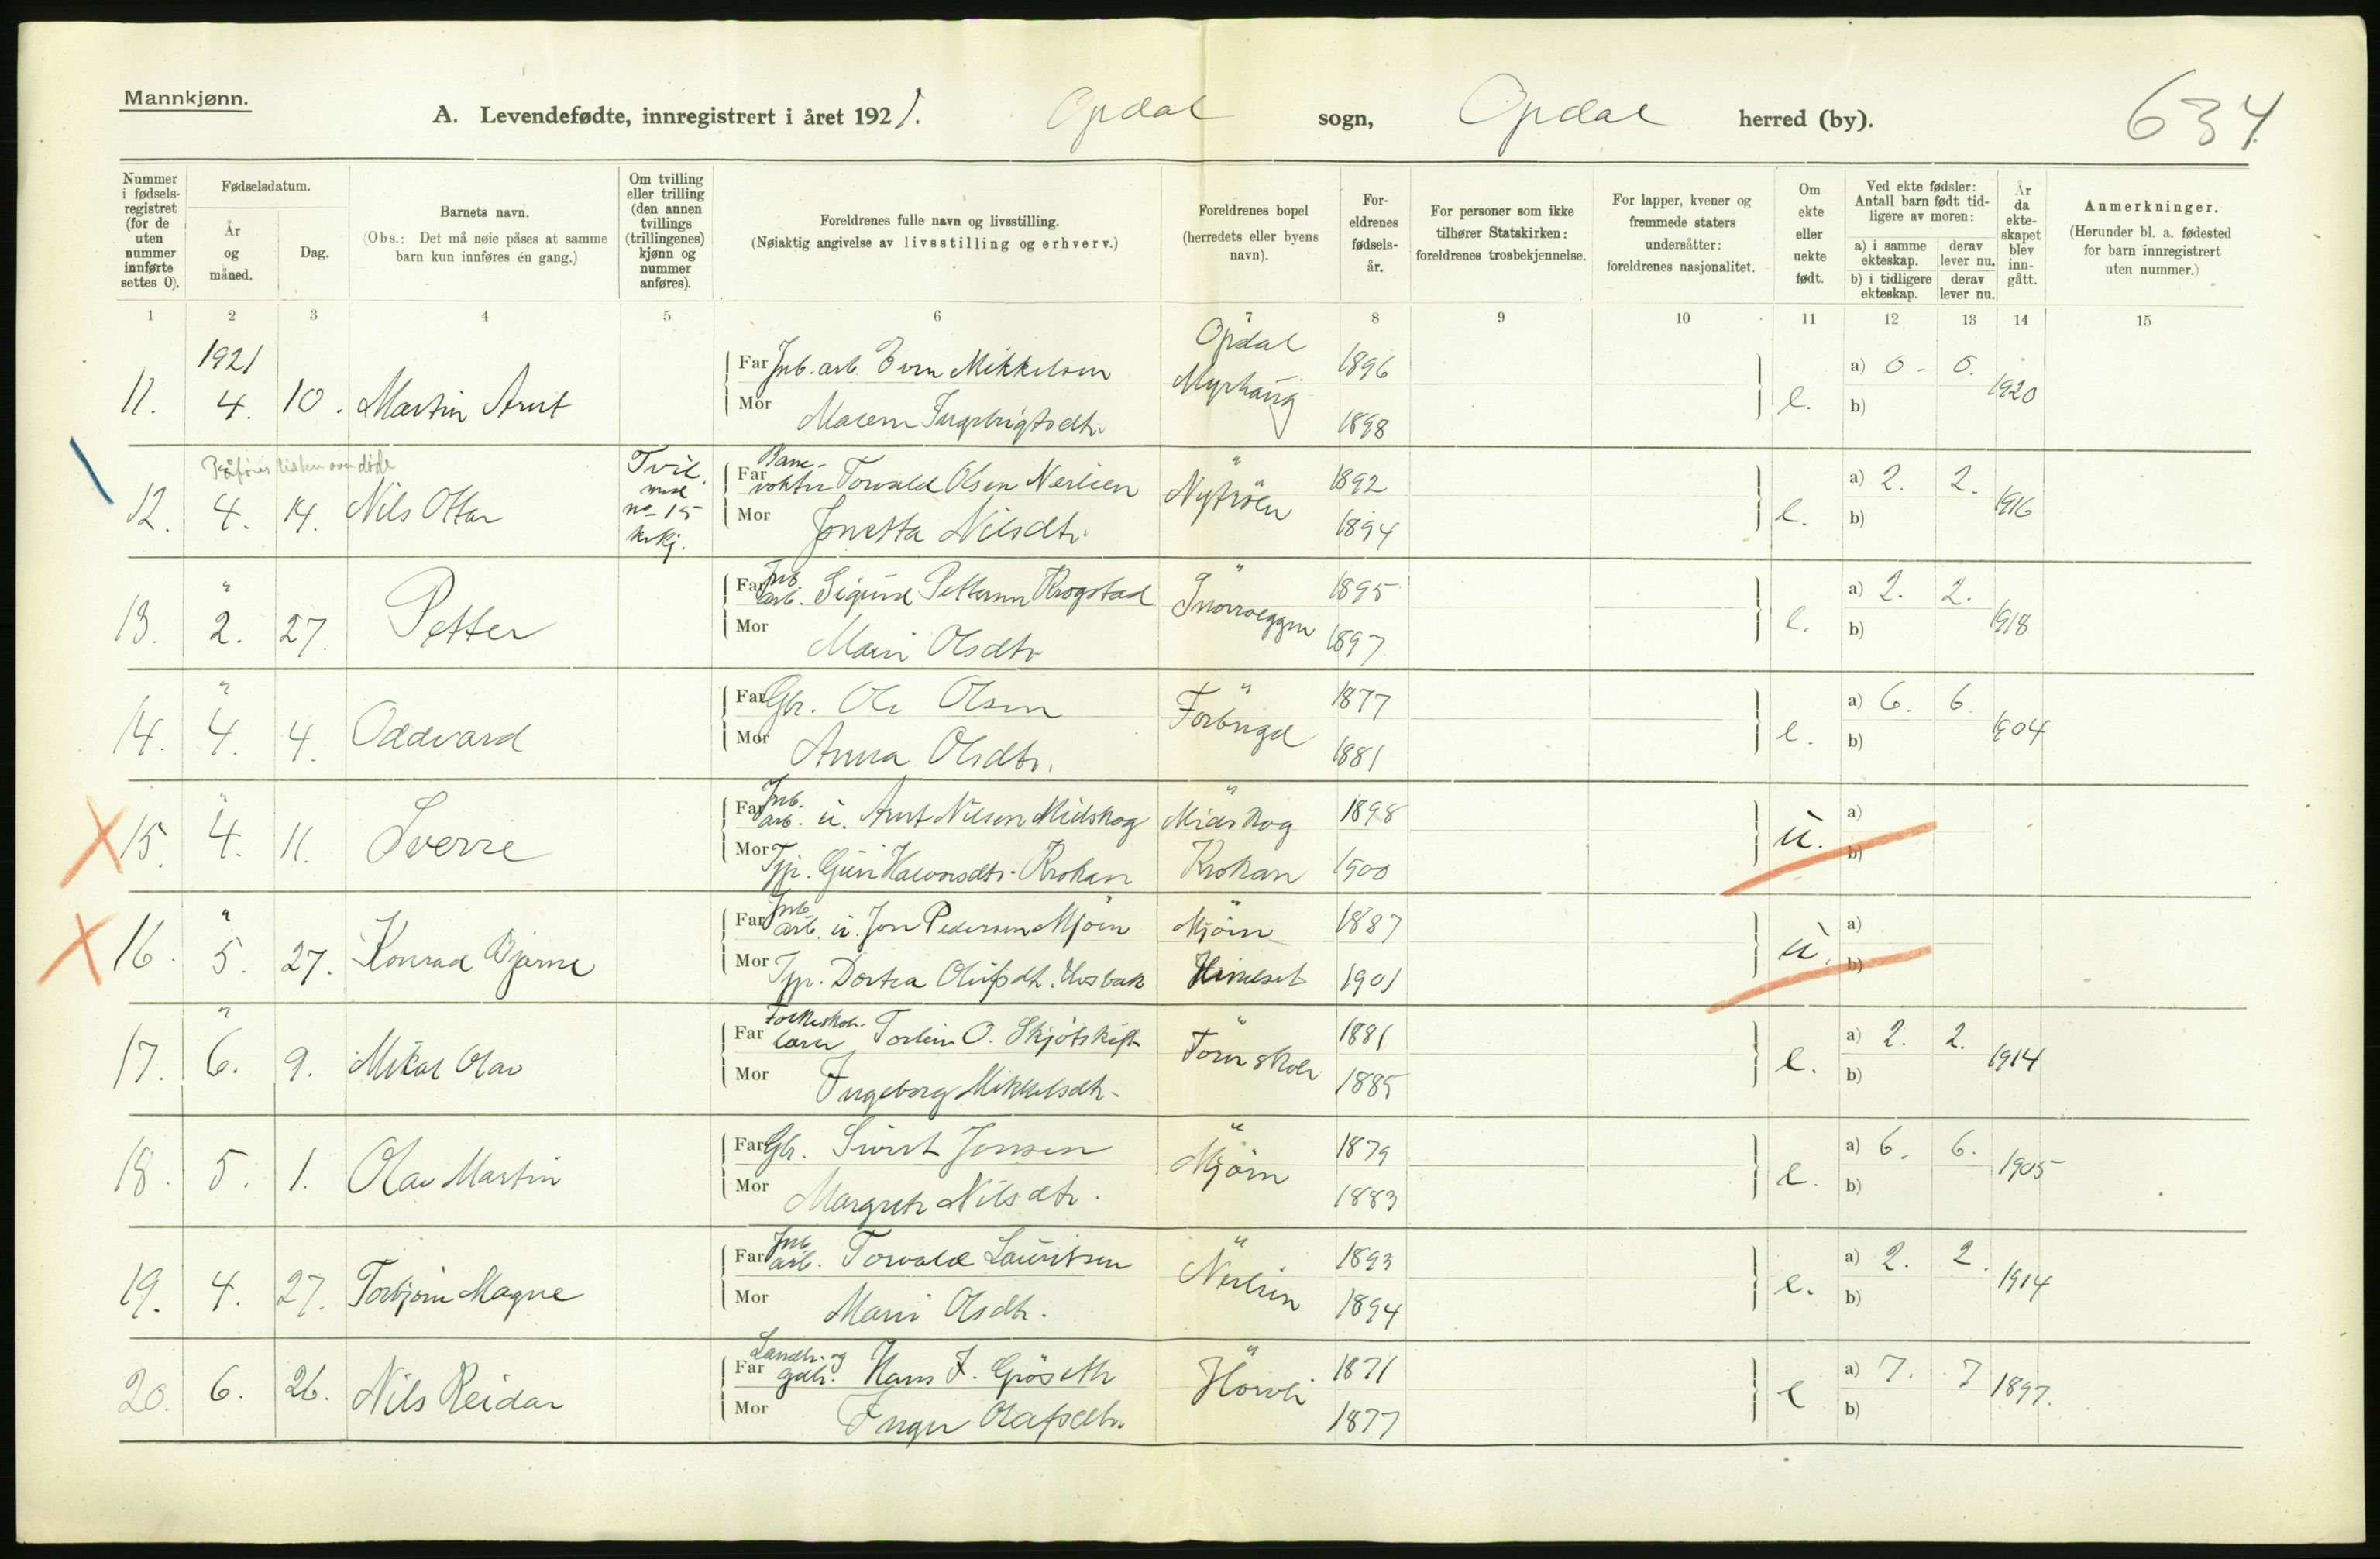 Mannkjønn.
A. Levendefødte, innregistrert i året 1921. Opdal sogn, Opdal herred (by). 634
Nummer i fødsels-registret (for de uten nummer innførte settes 0).
Fødselsdatum.
År og måned.
Dag.
Barnets navn.
(Obs.: Det må nøie påses at samme barn kun innføres én gang.)
Om tvilling eller trilling (den annen tvillings (trillingenes) kjønn og nummer anføres).
Foreldrenes fulle navn og livsstilling.
(Nøiaktig angivelse av livsstilling og erhverv.)
Foreldrenes bopel (herredets eller byens navn).
For-eldrenes fødsels-år.
For personer som ikke tilhører Statskirken: foreldrenes trosbekjennelse.
For lapper, kvener og fremmede staters undersåtter: foreldrenes nasjonalitet.
Om ekte eller uekte født.
Ved ekte fødsler: Antall barn født tid-ligere av moren:
a) i samme ekteskap. derav lever nu.
b) i tidligere ekteskap. derav lever nu.
År da ekte-skapet blev inn-gått.
Anmerkninger.
(Herunder bl. a. fødested for barn innregistrert uten nummer.)
1 2 3 4 5 6 7 8 9 10 11 12 13 14 15
1921 Opdal
11. 4. 10. Martin Arnt Far Jnb. arb. Even Mikkelsen Myrhaug 1896 e. a) 0 - 0. 1920
Mor Maren Ingebrigtsdtr. 1898 b)
Påføres listen over døde
12. 4. 14. Nils Ottar Tvil. med no 15 kvkj. Far Banevokter Torvald Olsen Nerlien " Nytrøen 1892 e. a) 2. 2. 1916
Mor Jonetta Nilsdtr. 1894 b)
13. " 2. 27. Petter Far Jnb. arb. Sigurd Pettersen Krogstad " 1895 e. a) 2. 2. 1918
Mor Mari Olsdtr 1897 b)
14. " 4. 4. Oddvard Far Gbr. Ole Olsen " Forbregd 1877 e. a) 6. 6. 1904
Mor Anna Olsdtr. 1881 b)
15. " 4. 11. Sverre Far Jnb. arb. u. Arnt Nilsen Midskog " Midskog 1898 u. a)
Mor Tjp. Guri Halvorsdtr. Krokan Krokan 1900 b)
16. " 5. 27. Konrad Bjarne Far Jnb. arb. u. Jon Pedersen Mjøen " Mjøen 1887 u. a)
Mor Tjp. Dortea Olufsdtr. Husbak 1901 b)
17. " 6. 9. Mikal Olav Far Folkeskolelærer Torlein O. Skjøtskift " 1881 e. a) 2. 2. 1914
Mor Ingeborg Mikkelsdtr. 1885 b)
18. 5. 1. Olav Martin Far Gbr. Sivert Jonsen " Mjøen 1879 e. a) 6. 6. 1905
Mor Margrete Nilsdtr. 1883 b)
19. 4. 27. Torbjørn Magne Far Jnb. arb. Torvald Lauritsen " Nerlien 1893 e. a) 2. 2. 1914
Mor Mari Olsdtr. 1894 b)
20. 6. 26. Nils Reidar Far Landh. og gdbr. Hans J. Grøseth " Horvli 1871 e a) 7. 7 1897.
Mor Inger Olafsdtr. 1877 b)